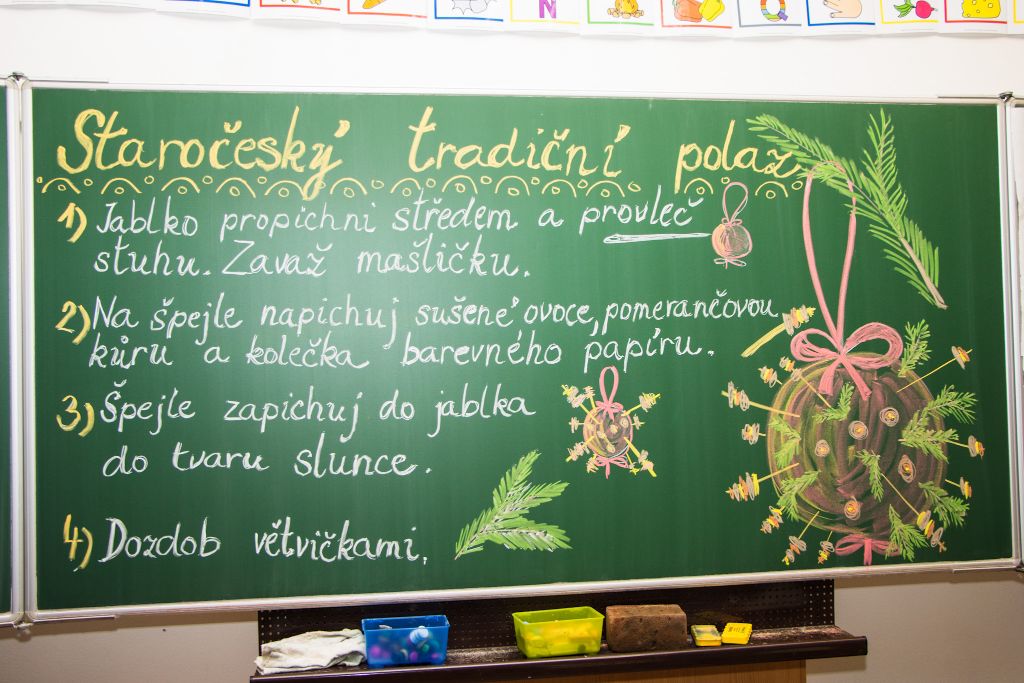 N
Staročeský tradiční polaz
1) Jablko propichni středem a provleč
stuhu. Zavaž mašličku.
2) Na špejle napichuj sušené ovoce, pomerančovou
kůru a kolečka barevného papíru.
3) Špejle zapichuj do jablka
do tvaru slunce.
4) Dozdob větvičkami.